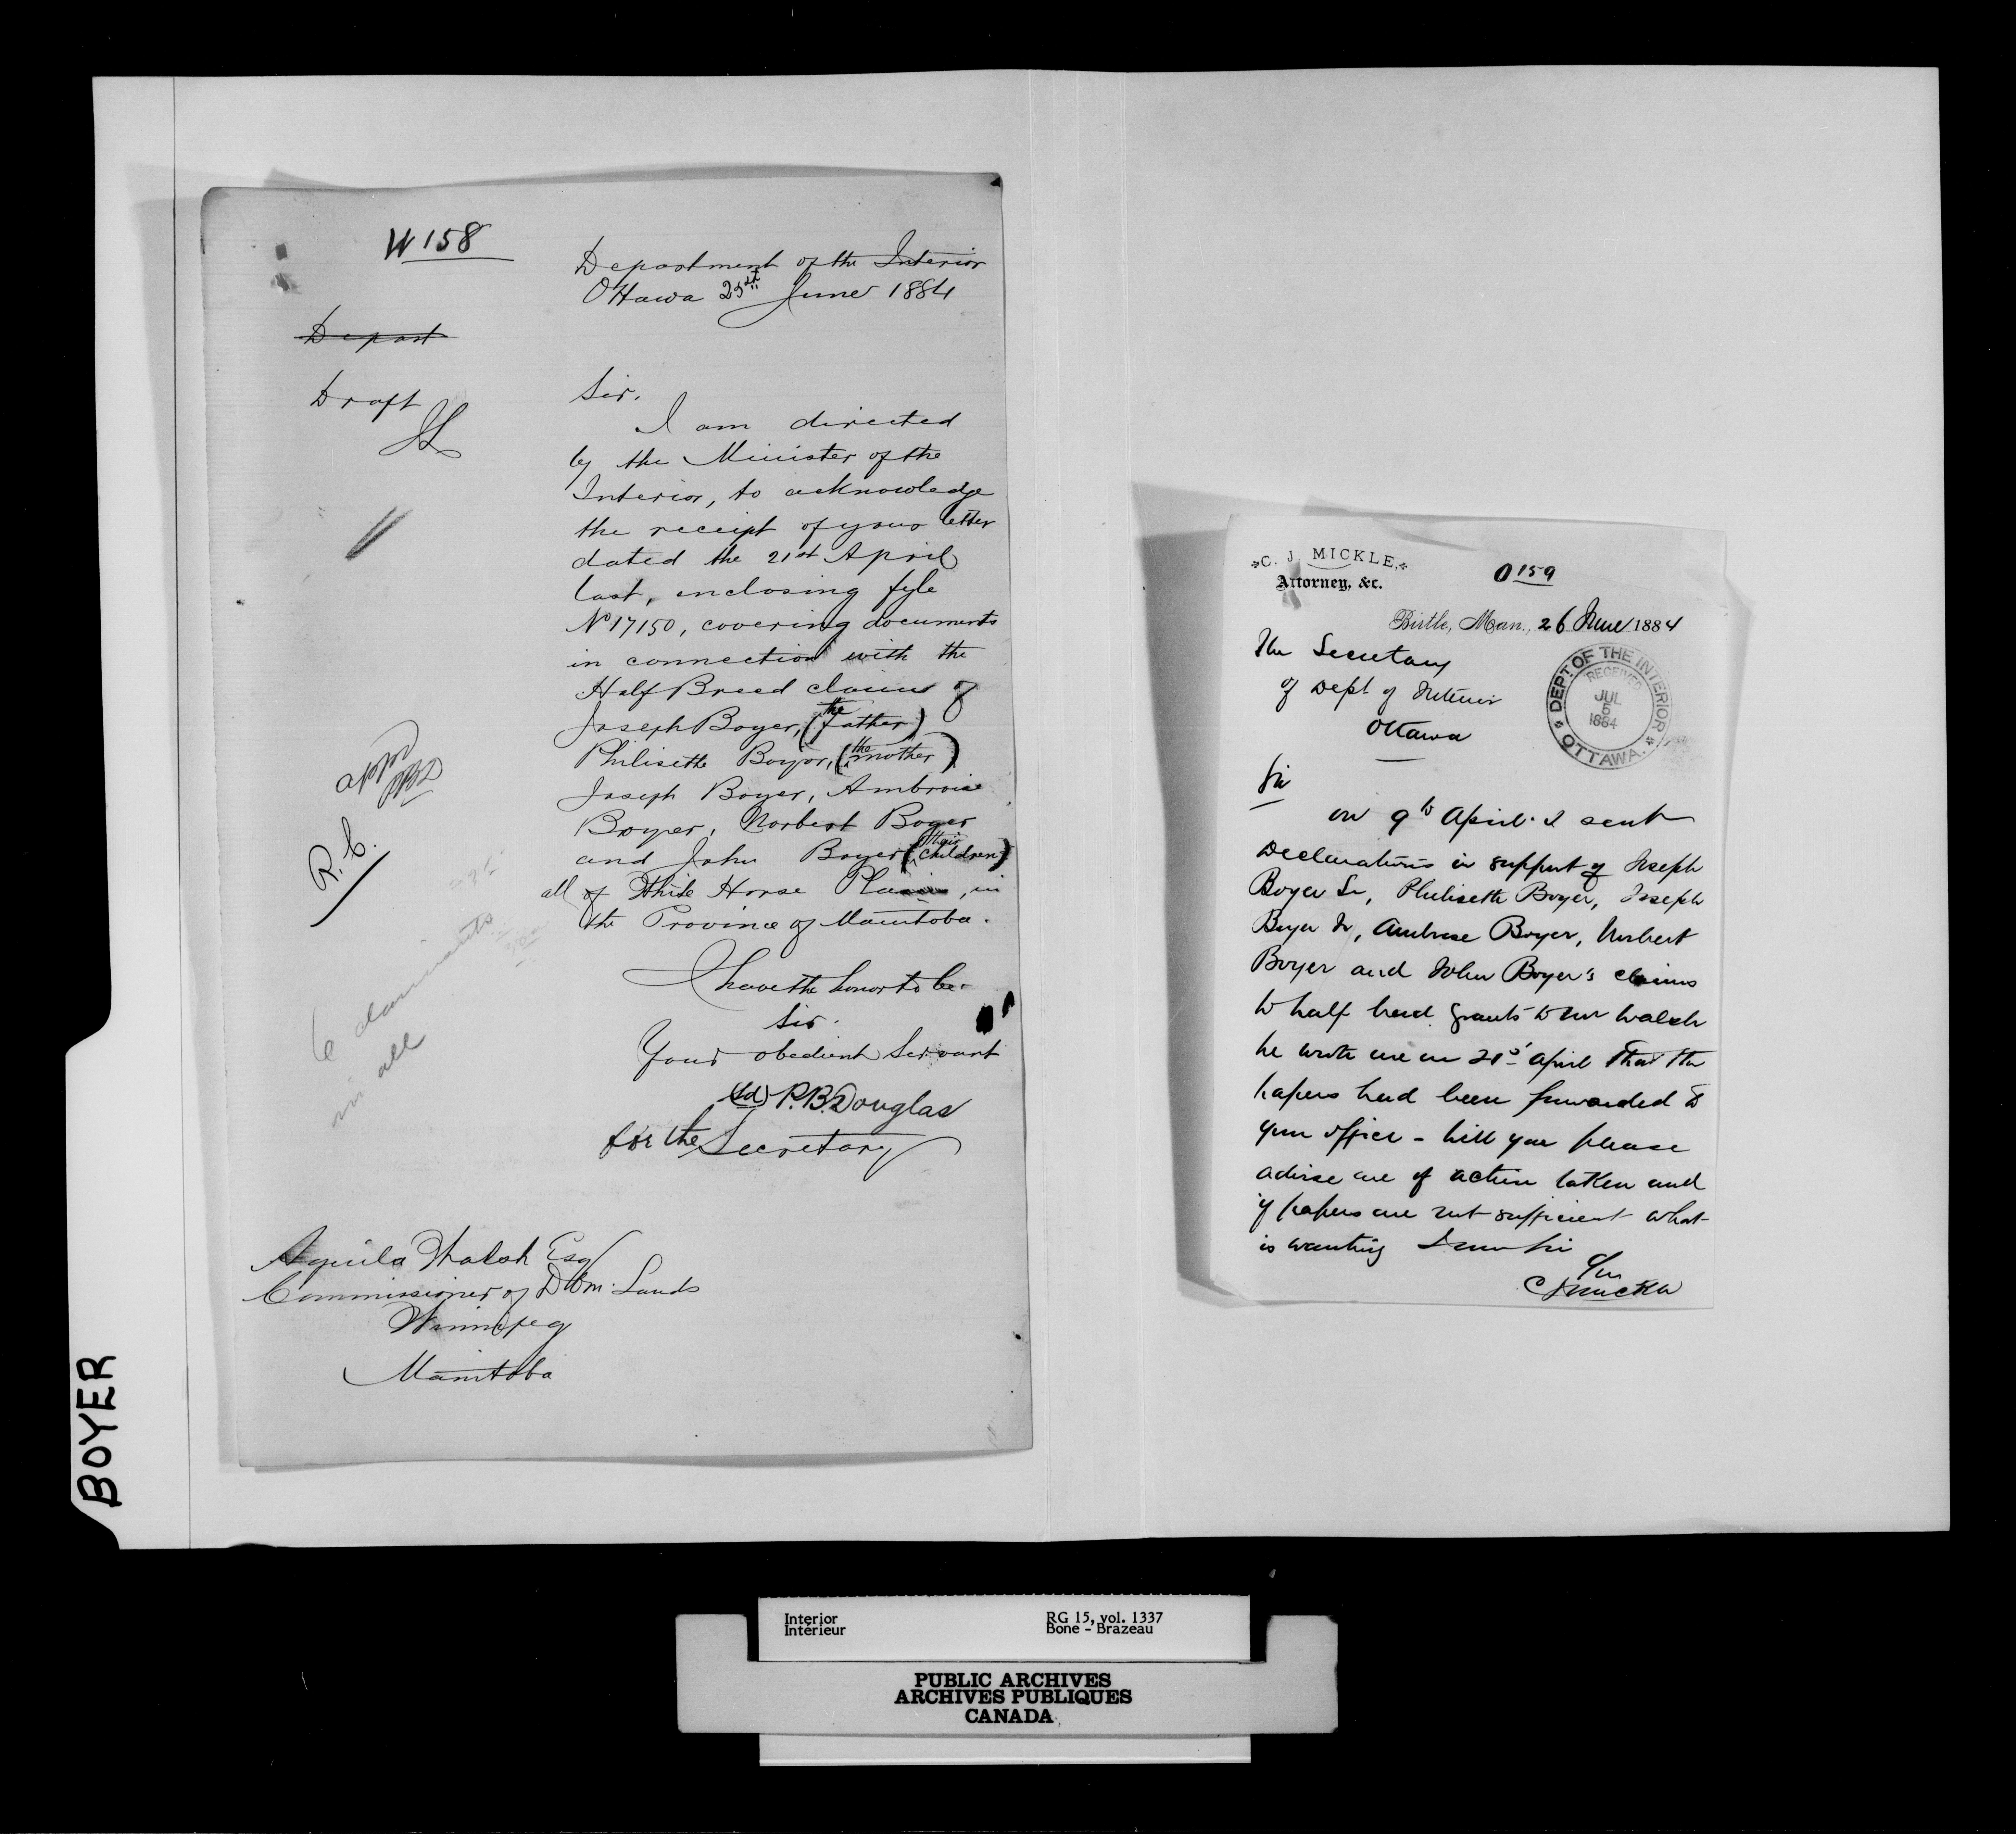 W 158
Department of the Interior
Ottawa 25th June 1884
Depart
Draft
Sir.
I am directed
by the Minister of the
Interior, to acknowledge
the receipt of your letter
dated the 21st April
last, enclosing fyle
No 17150, covering documents
in connection with the
Half Breed claims of
Joseph Boyer, (the father)
Philisette Boyer, (the mother)
Joseph Boyer, Ambroise
Boyer, Norbert Boyer
and John Boyer (their children)
all of White Horse Plains, in
the Province of Manitoba.
I have the honor to be.
Sir.
Your obedient Servant
(Sd) P.B. Douglas
for the Secretary
R.C.
6 claimants
in all
Aquila Walsh Esq
Commissioner of Dom. Lands
Winnipeg
Manitoba
BOYER
C. J. MICKLE,
Attorney, &c.
O 159
Birtle, Man., 26 June 1884
The Secretary
of Dept of Interior
Ottawa
DEPT. OF THE INTERIOR
RECEIVED
JUL
5
1884
OTTAWA.
Sir
on 9th April I sent
Declarations in support of Joseph
Boyer Sr, Philisette Boyer, Joseph
Boyer Jr, Ambrose Boyer, Norbert
Boyer and John Boyer's claims
to half breed grants to Mr Walsh
he wrote me on 21st April that the
papers had been forwarded to
your office - will you please
advise me of action taken and
if papers are not sufficient what
is wanting
C J Mickle
Interior
Intérieur
RG 15, vol. 1337
Bone - Brazeau
PUBLIC ARCHIVES
ARCHIVES PUBLIQUES
CANADA